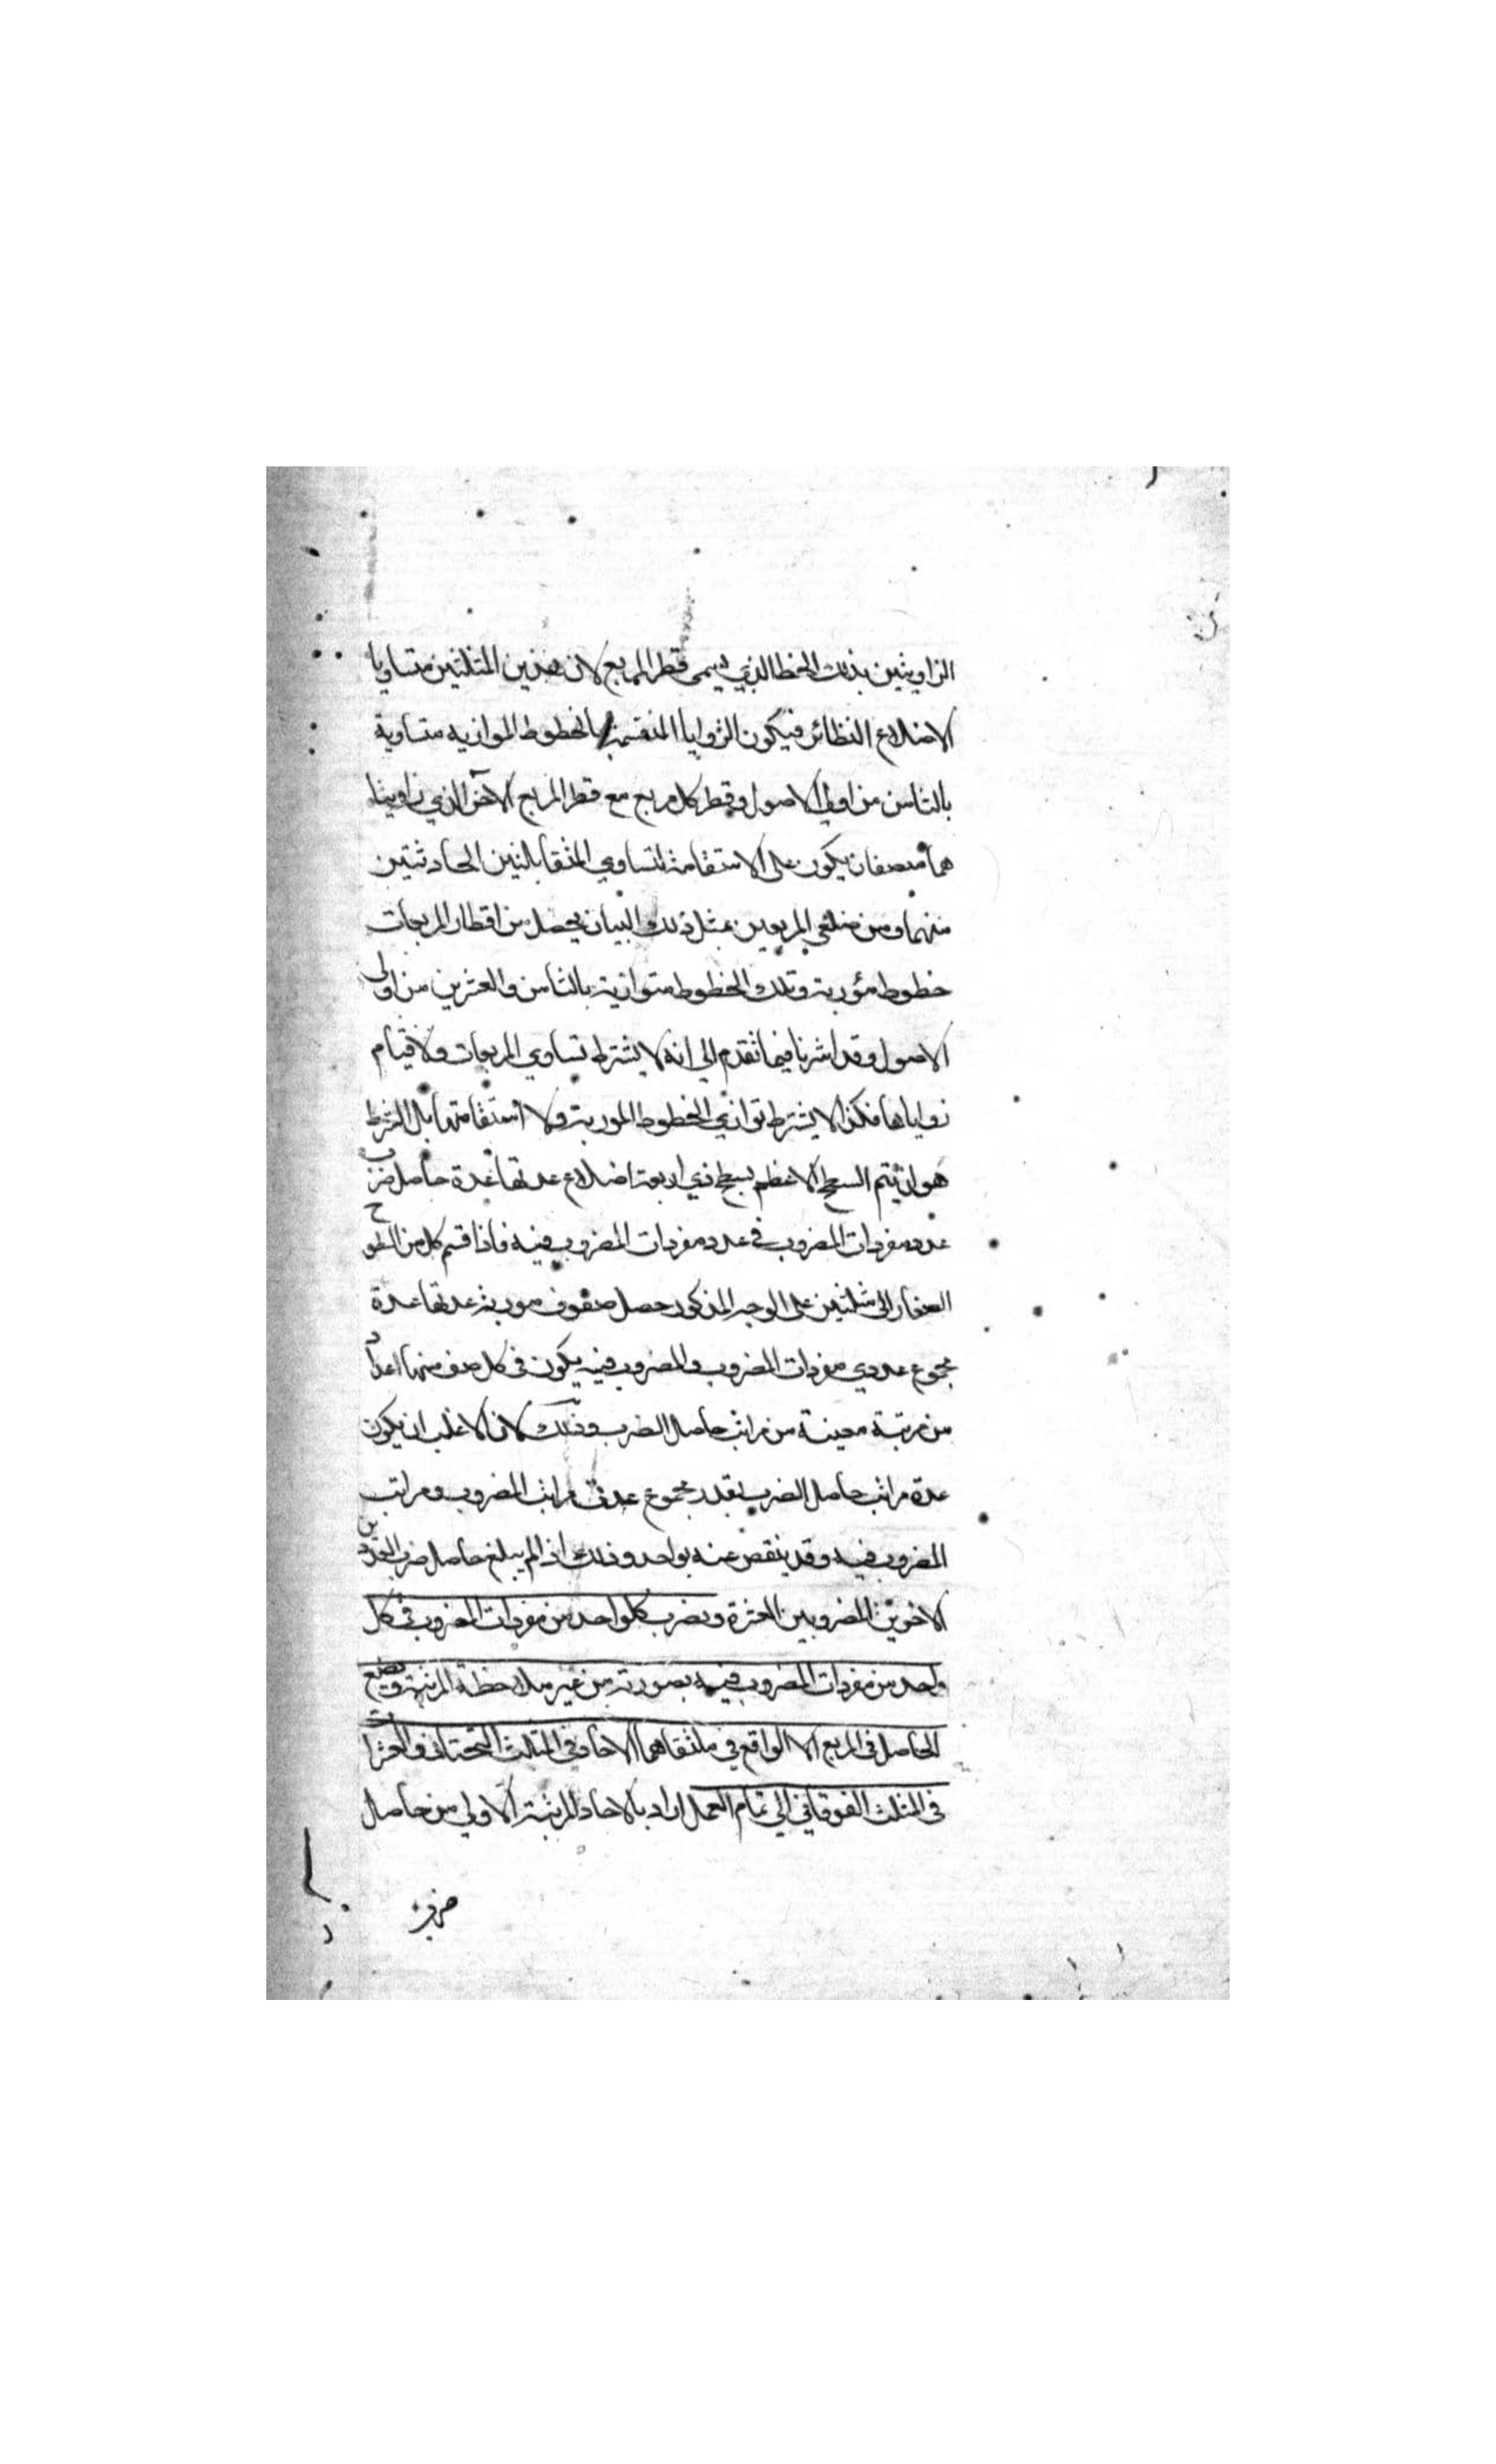 الزاويتين بذلك الخط الذي يسمى قطر المربع لان هذين المثلثين متساويا
الاضلاع النظائر فيكون الزوايا المنقسمة بالخطوط الموازيه متساوية
بالثامن من اولى الاصول وقطر كل مربع مع قطر المربع الاخر الذي زاويتا
هما منصفان يكون على الاستقامة لتساوي المتقابلتين الحادثتين
منهما ومن ضلعي المربعين بمثل ذلك البيان يحصل من اقطار المربعات
خطوط مؤربة وتلك الخطوط متوازية بالثامن والعشرين من اولى
الاصول وقد اشرنا فيما تقدم الى انه لا يشترط تساوي المربعات ولا قيام
زواياها فكذا لا يشترط توازي الخطوط الموربة ولا استقامتها بل الشرط
هو ان يتم السطح الاعظم بسطح ذي اربعة اضلاع عدتها عدة حاصل ضرب
عدد مفردات المضروب في عدد مفردات المضروب فيه فاذا قسم كل من السطوح
الصغار الى مثلثين على الوجه المذكور حصل صفوف موربة عدتها عدة
مجموع عددي مفردات المضروب والمضروب فيه يكون في كل صف منها اعداد
من مرتبة معينة من مراتب حاصل الضرب وذلك لان الاغلب ان يكون
عدة مراتب حاصل الضرب بقدر مجموع عدتي مراتب المضروب ومراتب
المضروب فيه وقد ينقص عنه بواحد وذلك اذا لم يبلغ حاصل ضرب العددين
الاخرين المضروبين العشرة ويضرب كل واحد من مفردات المضروب في كل
واحد من مفردات المضروب فيه بصورته من غير ملاحظة المرتبة ويضع
الحاصل في المربع الواقع في ملتقاهما الاحاد في المثلث التحتاني والعشرات
في المثلث الفوقاني الى تمام العمل اراد بالاحاد المرتبة الاولى من حاصل
ضرب